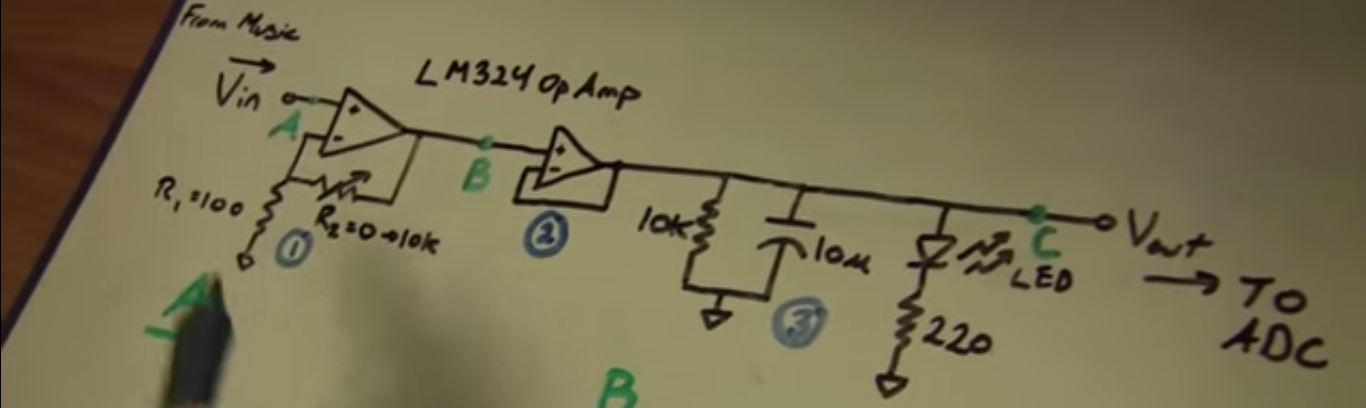 From Music
Vin
LM324 Op Amp
A
B
R₁=100
R₂=0→10k
①
②
10k
10μ
③
LED
220
C
Vout
→ TO
ADC
A
B